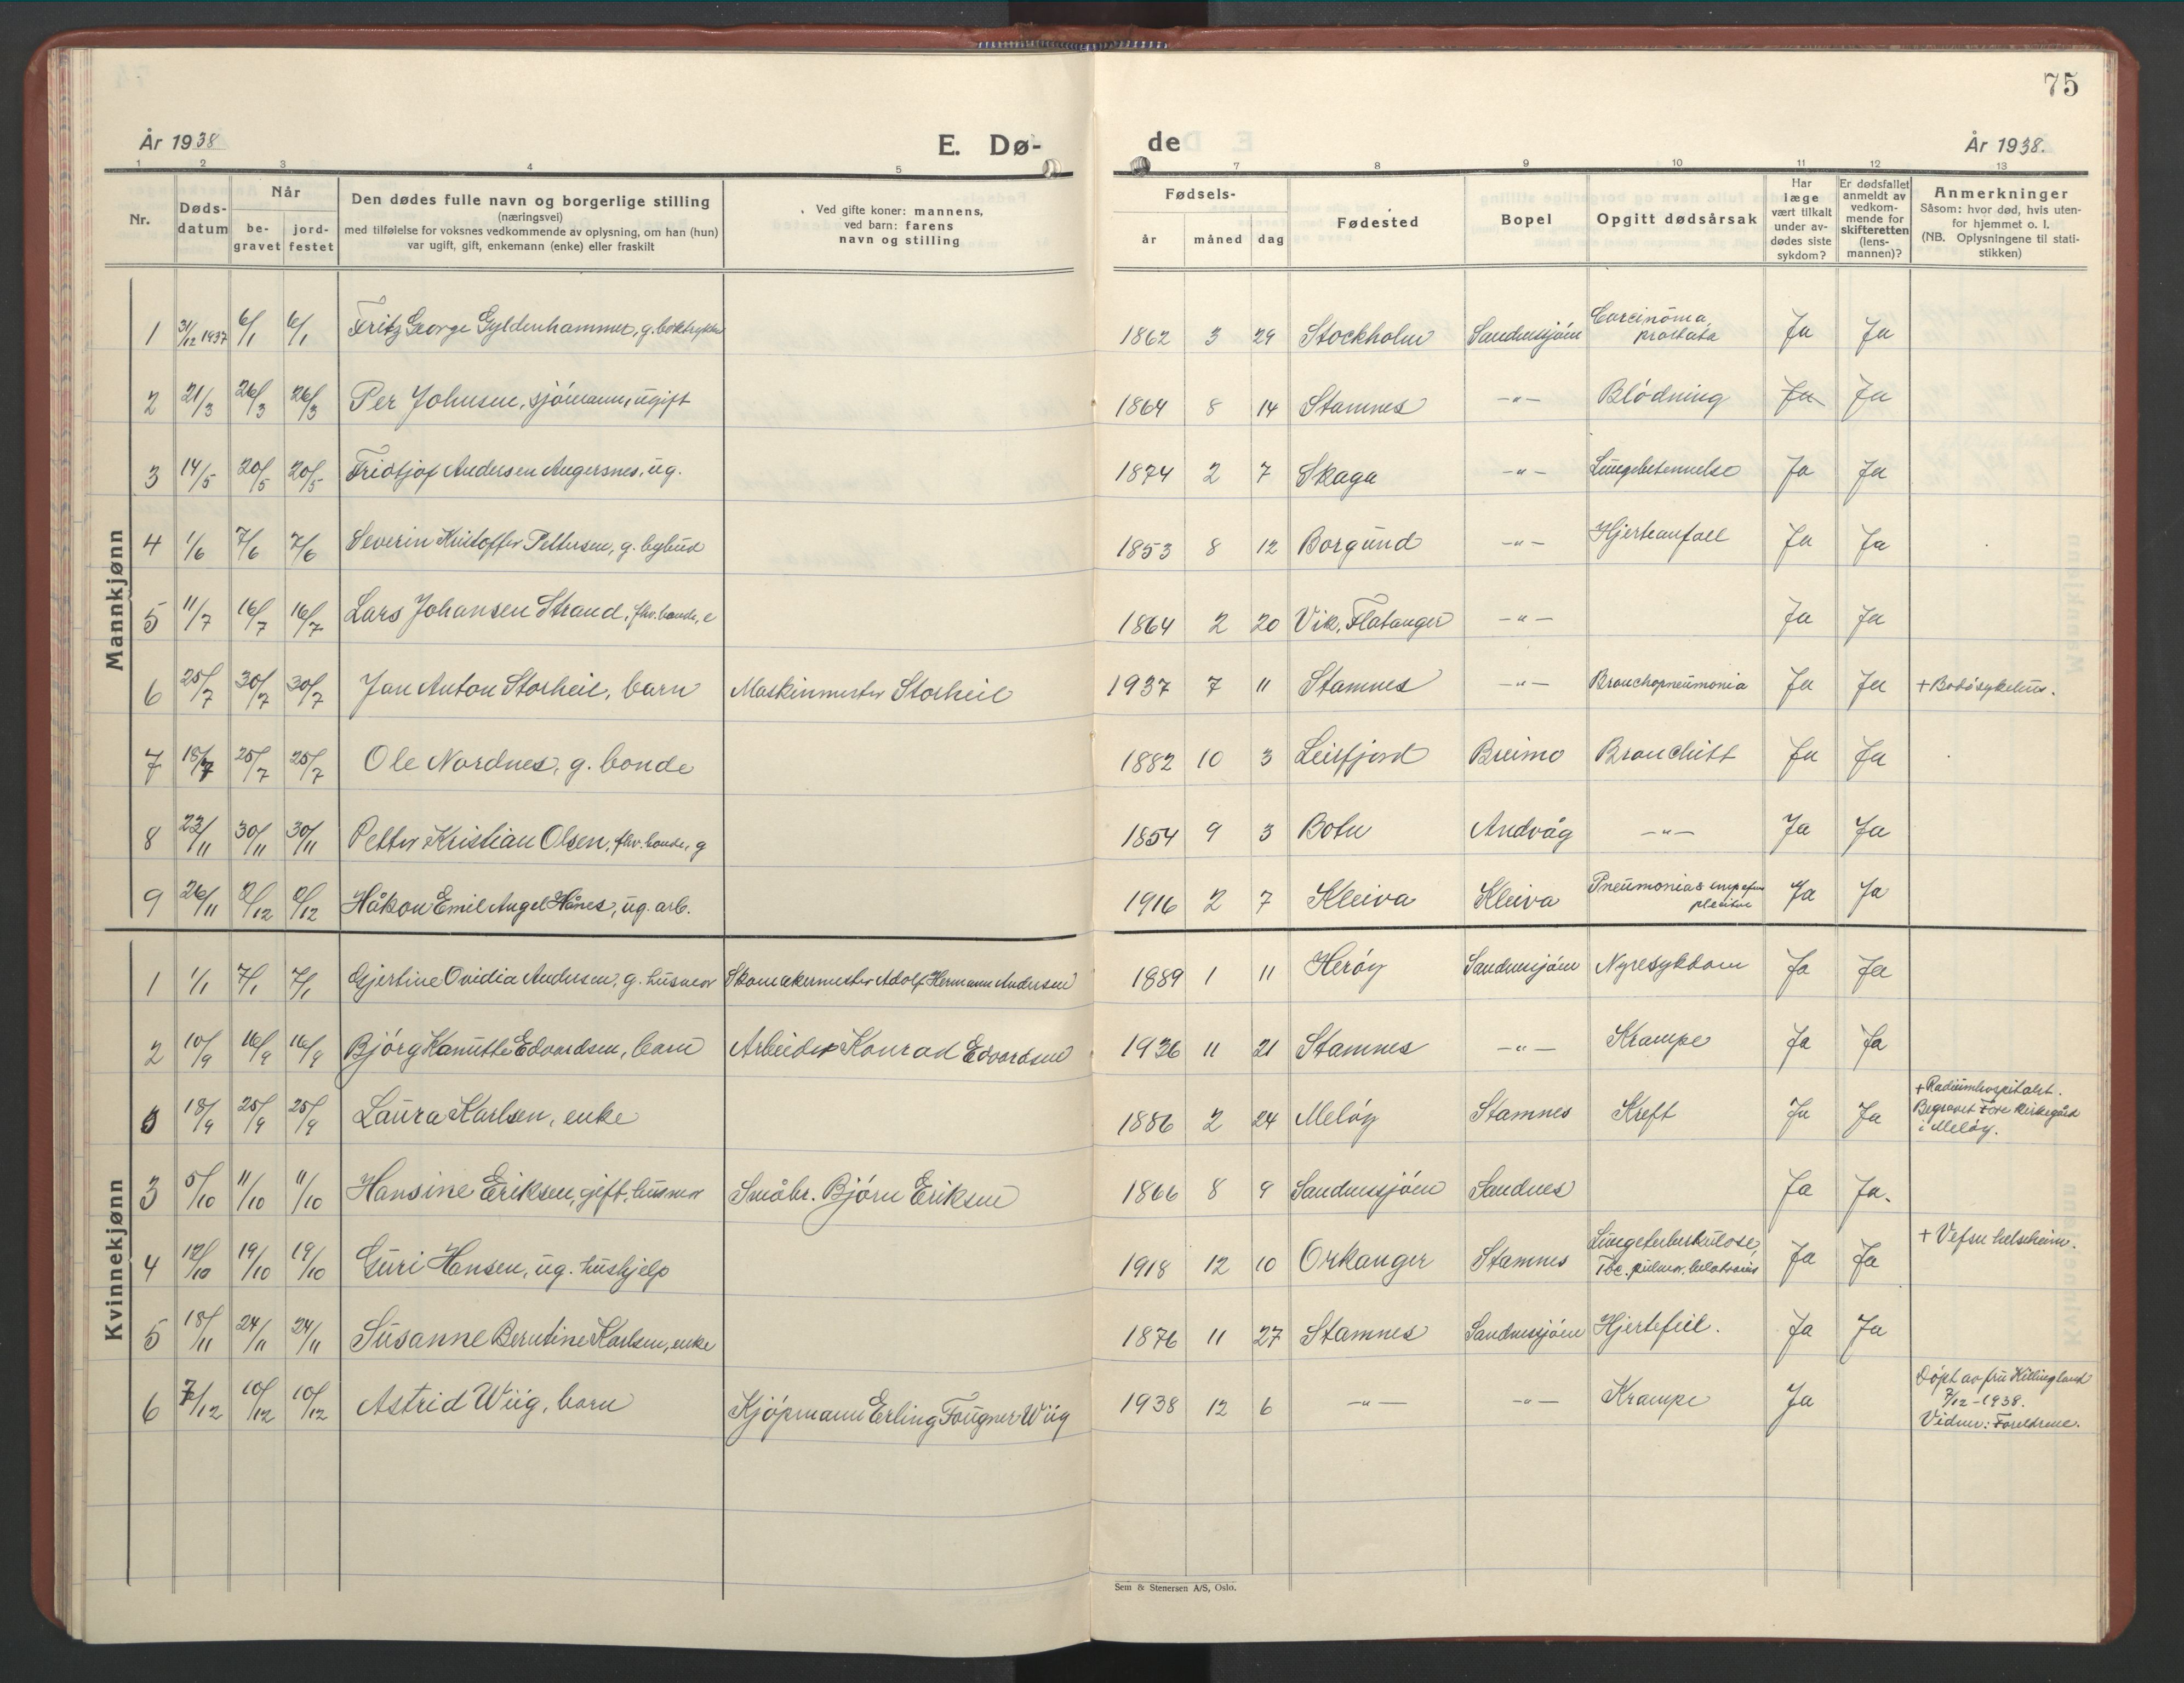 75
År 1938
E. Dø-
de
År 1938.
1 2 3 4 5 7 8 9 10 11 12 13
Nr.
Døds-
datum
Når
be-
gravet
jord-
festet
Den dødes fulle navn og borgerlige stilling
(næringsvei)
med tilføielse for voksnes vedkommende av oplysning, om han (hun)
var ugift, gift, enkemann (enke) eller fraskilt
Ved gifte koner: mannens,
ved barn: farens
navn og stilling
Fødsels-
år måned dag
Fødested
Bopel
Opgitt dødsårsak
Har
læge
vært tilkalt
under av-
dødes siste
sykdom?
Er dødsfallet
anmeldt av
vedkom-
mende for
skifteretten
(lens-
mannen)?
Anmerkninger
Såsom: hvor død, hvis uten-
for hjemmet o. l.
(NB. Oplysningene til stati-
stikken)
Mannkjønn
1 31/12 1937 6/1 6/1 Fritz George Gyldenhammer, g. boktrykker 1862 3 29 Stockholm Sandnessjøen Carcinoma
prostata Ja Ja
2 21/3 26/3 26/3 Per Johnsen, sjømann, ugift 1864 8 14 Stamnes -"- Blødning Ja Ja
3 14/5 20/5 20/5 Fridtjof Andersen Angersnes, ug. 1874 2 7 Skaga -"- Lungebetennelse Ja Ja
4 1/6 7/6 7/6 Severin Kristoffer Pettersen, g. bybud 1853 8 12 Borgund -"- Hjerteanfall Ja Ja
5 11/7 16/7 16/7 Lars Johansen Strand, fhv. bonde, e 1864 2 20 Vik, Flatanger -"- Ja Ja
6 25/7 30/7 30/7 Jan Anton Storheil, barn Maskinmester Storheil 1937 7 11 Stamnes -"- Bronchopneumonia Ja Ja + Bodø sykehus.
7 18/7 25/7 25/7 Ole Nordnes, g. bonde 1882 10 3 Leirfjord Breimo Bronchitt Ja Ja
8 23/11 30/11 30/11 Petter Kristian Olsen, fhv. bonde, g 1854 9 3 Botn Andvåg -"- Ja Ja
9 26/11 /12 /12 Håkon Emil Angel Hånes, ug. arb. 1916 2 7 Kleiva Kleiva Pneumonia
Ja Ja
Kvinnekjønn
1 1/1 7/1 7/1 Gjertine Ovidia Andersen, g. husmor Skomakermester Adolf Hermann Andersen 1889 1 11 Herøy Sandnessjøen Nyresykdom Ja Ja
2 10/9 16/9 16/9 Bjørg Kanutte Edvardsen, barn Arbeider Konrad Edvardsen 1936 11 21 Stamnes -"- Krampe Ja Ja
0 18/9 25/9 25/9 Laura Karlsen, enke 1886 2 24 Meløy Stamnes Kreft Ja Ja + Radiumhospitalet.
Begravet Fore kirkegård
i Meløy.
3 5/10 11/10 11/10 Hansine Eriksen, gift, husmor Småbr. Bjørn Eriksen 1866 8 9 Sandnessjøen Sandnes Ja Ja.
4 12/10 19/10 19/10 Guri Hansen, ug. hushjelp 1918 12 10 Orkanger Stamnes Lungetuberkulose,
Tbc. pulmon. Ja Ja + Vefsn helseheim.
5 18/11 24/11 24/11 Susanne Berntine Karlsen, enke 1876 11 27 Stamnes Sandnessjøen Hjertefeil. Ja Ja
6 7/12 10/12 10/12 Astrid Wiig, barn Kjøpmann Erling Fougner Wiig 1938 12 6 -"- -"- Krampe Ja Døpt av fru Killingland
7/12-1938.
Vidner: Foreldrene.
Sem & Stenersen A/S, Oslo.